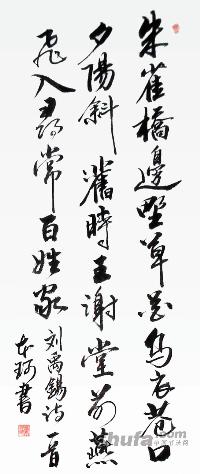 朱雀橋邊野草花烏衣巷口
夕陽斜舊時王謝堂前燕
飛入尋常百姓家
刘禹錫诗一首
书珂書
hufa.com